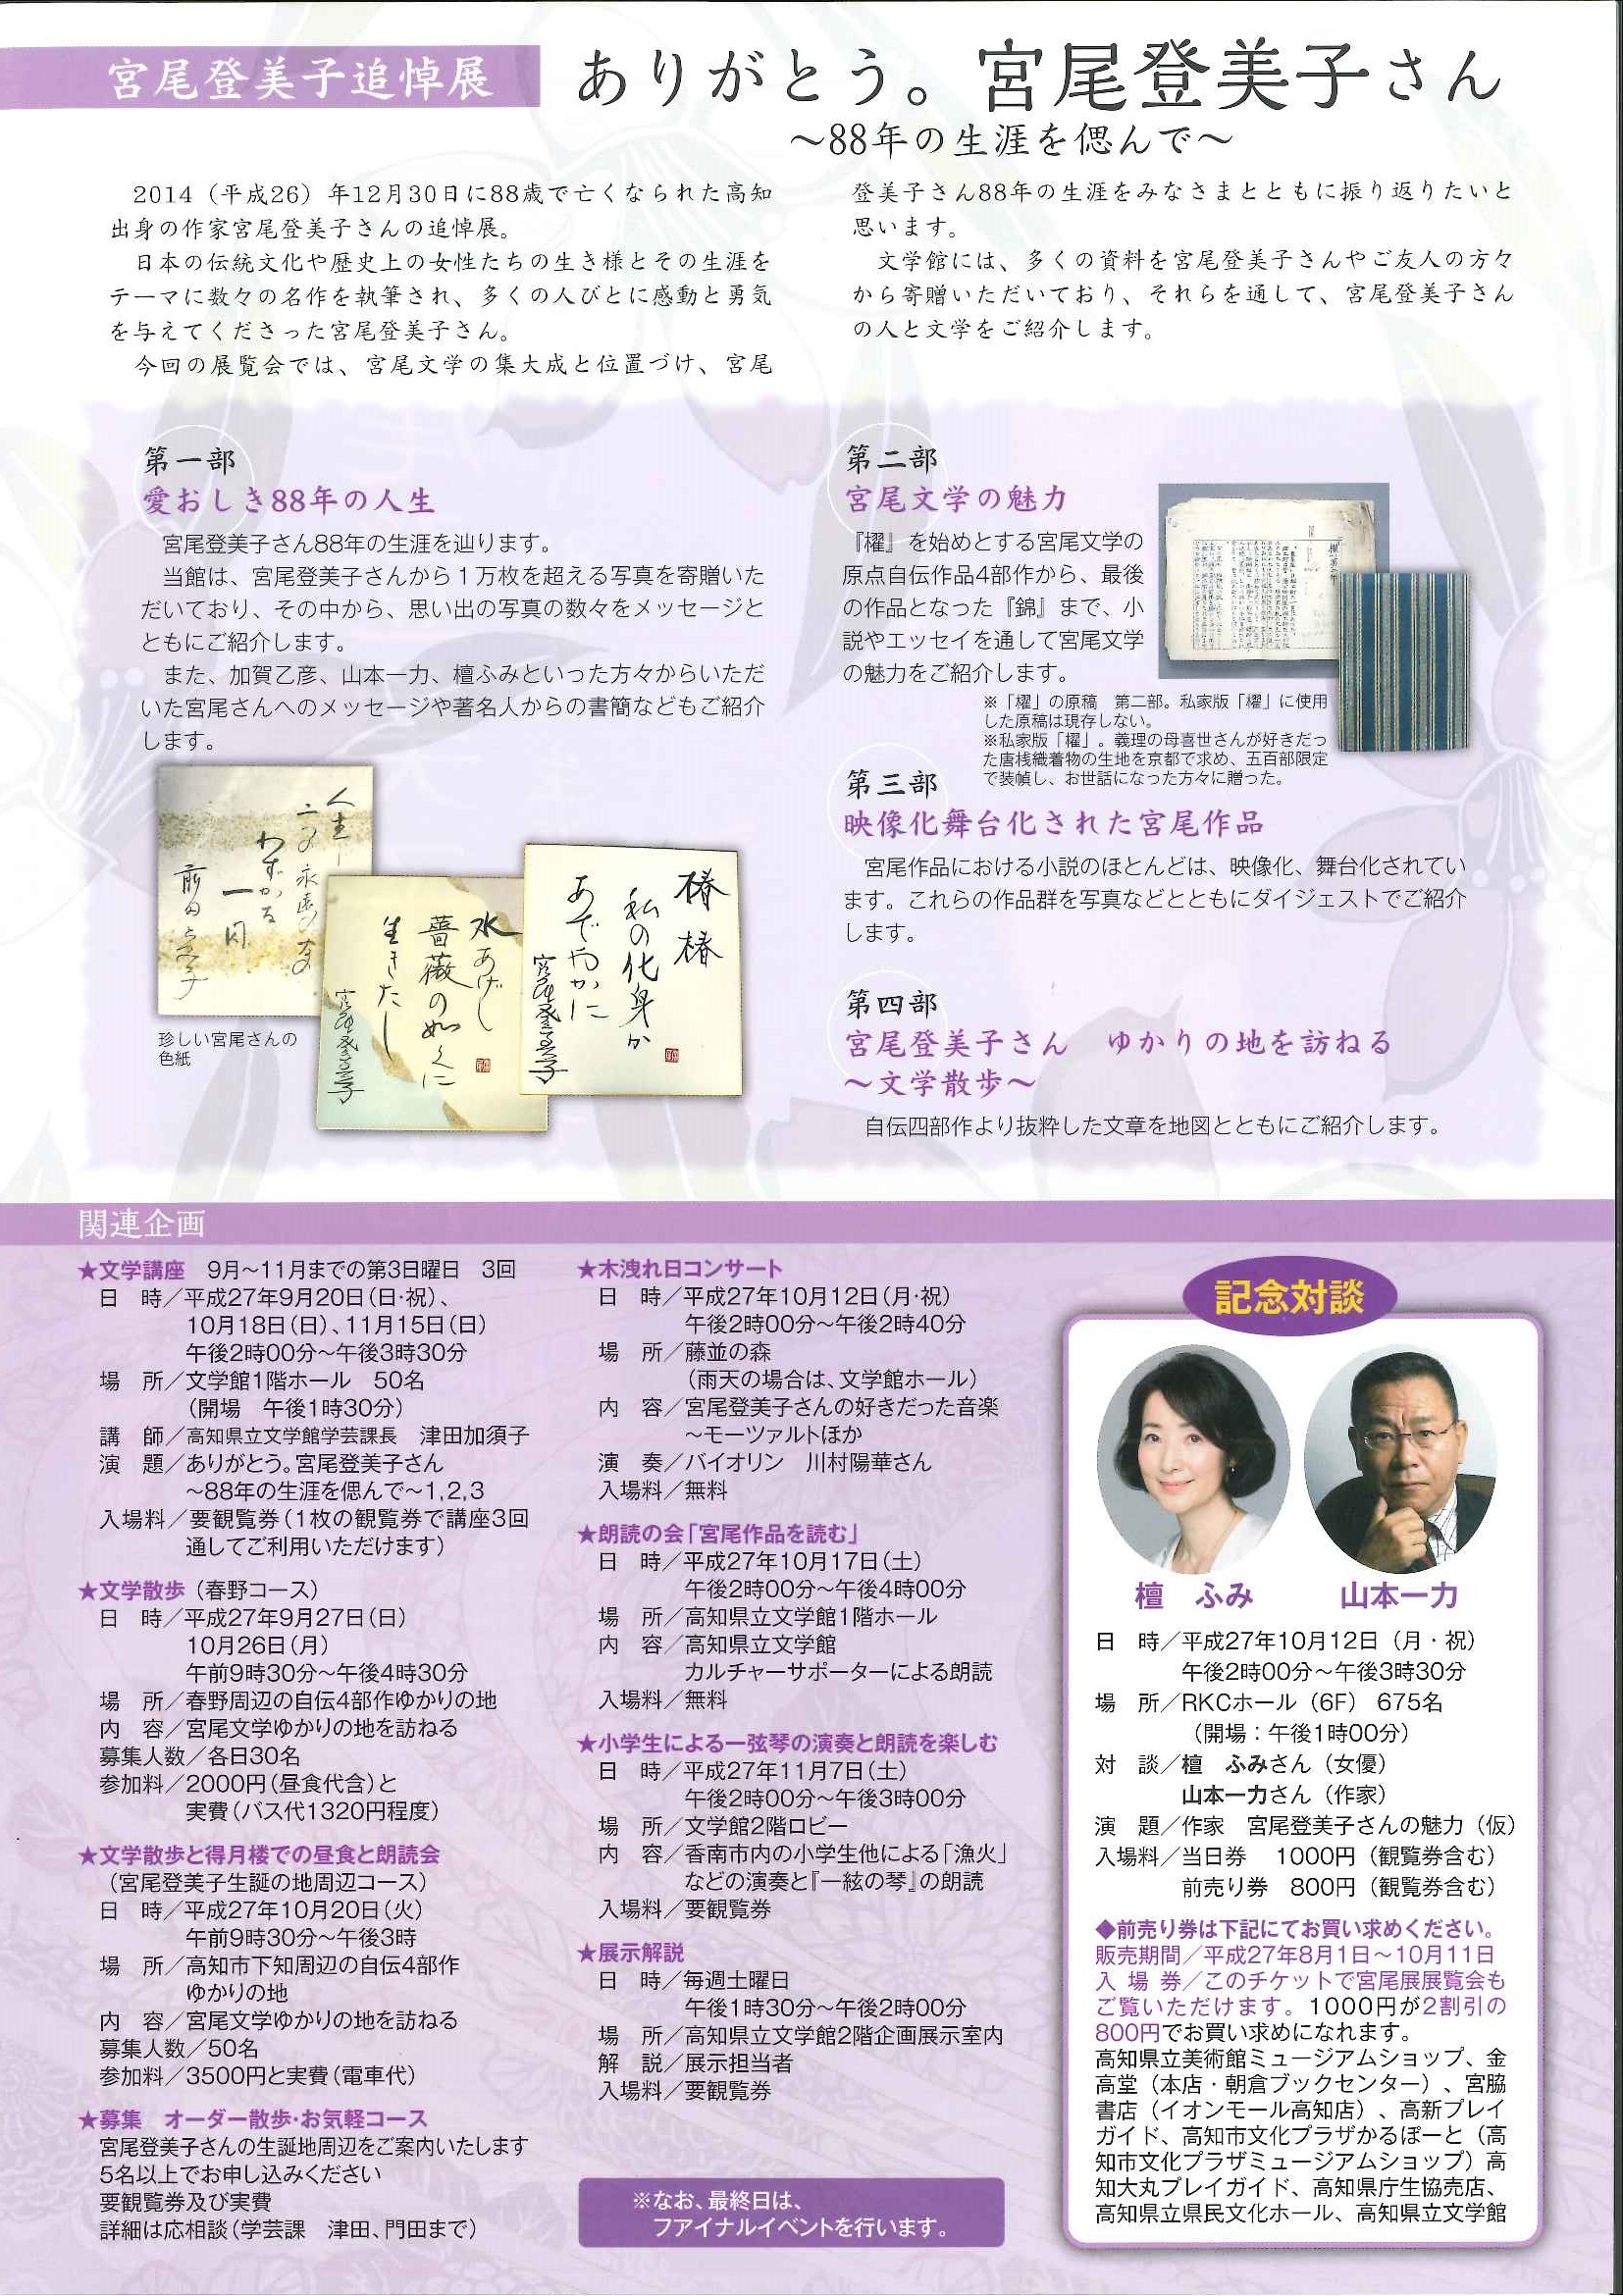 宮尾登美子追悼展
ありがとう。宮尾登美子さん
～88年の生涯を偲んで～
2014（平成26）年12月30日に88歳で亡くなられた高知
出身の作家宮尾登美子さんの追悼展。
日本の伝統文化や歴史上の女性たちの生き様とその生涯を
テーマに数々の名作を執筆され、多くの人びとに感動と勇気
を与えてくださった宮尾登美子さん。
今回の展覧会では、宮尾文学の集大成と位置づけ、宮尾
登美子さん88年の生涯をみなさまとともに振り返りたいと
思います。
文学館には、多くの資料を宮尾登美子さんやご友人の方々
から寄贈いただいており、それらを通して、宮尾登美子さん
の人と文学をご紹介します。
第一部
愛おしき88年の人生
宮尾登美子さん88年の生涯を辿ります。
当館は、宮尾登美子さんから１万枚を超える写真を寄贈いた
だいており、その中から、思い出の写真の数々をメッセージと
ともにご紹介します。
また、加賀乙彦、山本一力、檀ふみといった方々からいただ
いた宮尾さんへのメッセージや著名人からの書簡などもご紹介
します。
わずかる
一同
水あげし
薔薇の如くに
生きたし
宮尾登美子
椿 椿
私の化身か
あでやかに
宮尾登美子
珍しい宮尾さんの
色紙
第二部
宮尾文学の魅力
『櫂』を始めとする宮尾文学の
原点自伝作品4部作から、最後
の作品となった『錦』まで、小
説やエッセイを通して宮尾文学
の魅力をご紹介します。
※「櫂」の原稿　第二部。私家版「櫂」に使用
した原稿は現存しない。
※私家版「櫂」。義理の母喜世さんが好きだっ
た唐桟織着物の生地を京都で求め、五百部限定
で装幀し、お世話になった方々に贈った。
第三部
映像化舞台化された宮尾作品
宮尾作品における小説のほとんどは、映像化、舞台化されてい
ます。これらの作品群を写真などとともにダイジェストでご紹介
します。
第四部
宮尾登美子さん　ゆかりの地を訪ねる
～文学散歩～
自伝四部作より抜粋した文章を地図とともにご紹介します。
関連企画
★文学講座　9月～11月までの第3日曜日　3回
日　時／平成27年9月20日（日・祝）、
10月18日（日）、11月15日（日）
午後2時00分～午後3時30分
場　所／文学館1階ホール　50名
（開場　午後1時30分）
講　師／高知県立文学館学芸課長　津田加須子
演　題／ありがとう。宮尾登美子さん
～88年の生涯を偲んで～1,2,3
入場料／要観覧券（1枚の観覧券で講座3回
通してご利用いただけます）
★文学散歩（春野コース）
日　時／平成27年9月27日（日）
10月26日（月）
午前9時30分～午後4時30分
場　所／春野周辺の自伝4部作ゆかりの地
内　容／宮尾文学ゆかりの地を訪ねる
募集人数／各日30名
参加料／2000円（昼食代含）と
実費（バス代1320円程度）
★文学散歩と得月楼での昼食と朗読会
（宮尾登美子生誕の地周辺コース）
日　時／平成27年10月20日（火）
午前9時30分～午後3時
場　所／高知市下知周辺の自伝4部作
ゆかりの地
内　容／宮尾文学ゆかりの地を訪ねる
募集人数／50名
参加料／3500円と実費（電車代）
★募集　オーダー散歩・お気軽コース
宮尾登美子さんの生誕地周辺をご案内いたします
5名以上でお申し込みください
要観覧券及び実費
詳細は応相談（学芸課　津田、門田まで）
★木洩れ日コンサート
日　時／平成27年10月12日（月・祝）
午後2時00分～午後2時40分
場　所／藤並の森
（雨天の場合は、文学館ホール）
内　容／宮尾登美子さんの好きだった音楽
～モーツァルトほか
演　奏／バイオリン　川村陽華さん
入場料／無料
★朗読の会「宮尾作品を読む」
日　時／平成27年10月17日（土）
午後2時00分～午後4時00分
場　所／高知県立文学館1階ホール
内　容／高知県立文学館
カルチャーサポーターによる朗読
入場料／無料
★小学生による一弦琴の演奏と朗読を楽しむ
日　時／平成27年11月7日（土）
午後2時00分～午後3時00分
場　所／文学館2階ロビー
内　容／香南市内の小学生他による「漁火」
などの演奏と『一絃の琴』の朗読
入場料／要観覧券
★展示解説
日　時／毎週土曜日
午後1時30分～午後2時00分
場　所／高知県立文学館2階企画展示室内
解　説／展示担当者
入場料／要観覧券
※なお、最終日は、
ファイナルイベントを行います。
記念対談
檀　ふみ　山本一力
日　時／平成27年10月12日（月・祝）
午後2時00分～午後3時30分
場　所／RKCホール（6F）675名
（開場：午後1時00分）
対　談／檀　ふみさん（女優）
山本一力さん（作家）
演　題／作家　宮尾登美子さんの魅力（仮）
入場料／当日券　1000円（観覧券含む）
前売り券　800円（観覧券含む）
◆前売り券は下記にてお買い求めください。
販売期間／平成27年8月1日～10月11日
入 場 券／このチケットで宮尾展展覧会も
ご覧いただけます。1000円が2割引の
800円でお買い求めになれます。
高知県立美術館ミュージアムショップ、金
高堂（本店・朝倉ブックセンター）、宮脇
書店（イオンモール高知店）、高新プレイ
ガイド、高知市文化プラザかるぽーと（高
知市文化プラザミュージアムショップ）高
知大丸プレイガイド、高知県庁生協売店、
高知県立県民文化ホール、高知県立文学館